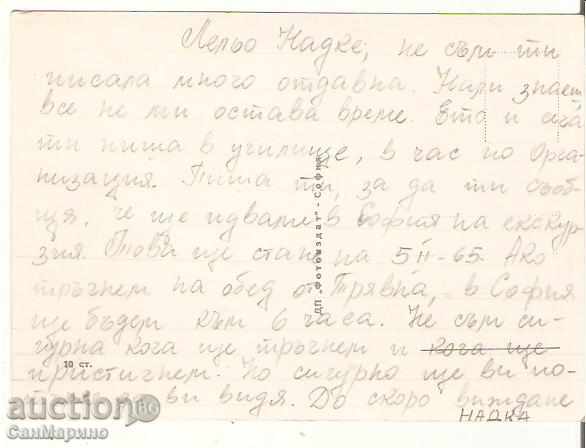 Лельо Надке, не съм ти
писала много отдавна. Нали знаеш
все не ми остава време. Ето и сега
ти пиша в училище, в час по Орга-
низация. Пиша ти, за да ти съоб-
щя, че ще идваме в София на екскур-
зия. Това ще стане на 5 II - 65. Ако
тръгнем на обед от Трявна, в София
ще бъдем към 6 часа. Не съм си-
гурна кога ще тръгнем и кога ще
пристигнем. Но сигурно ще ви по-
да ви видя. До скоро виждане
НАДКА
10 ст.
ДП „Фотоиздат" - София
auction BG
СанМарино